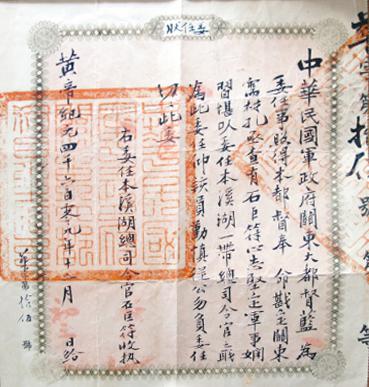 委任狀
中華民國軍政府關東大都督藍 為
委任事照得本都督奉 命戡定關東
需材孔亟查有石巨符心志堅定軍事嫻
習堪以委任本溪湖一帶總司令官之職
為此委任仰該員勤慎從公勿負委任
切此委
右委任本溪湖總司令官石巨符收执
黃帝紀元四千六百零九年十一月 日給
第拾伍 號